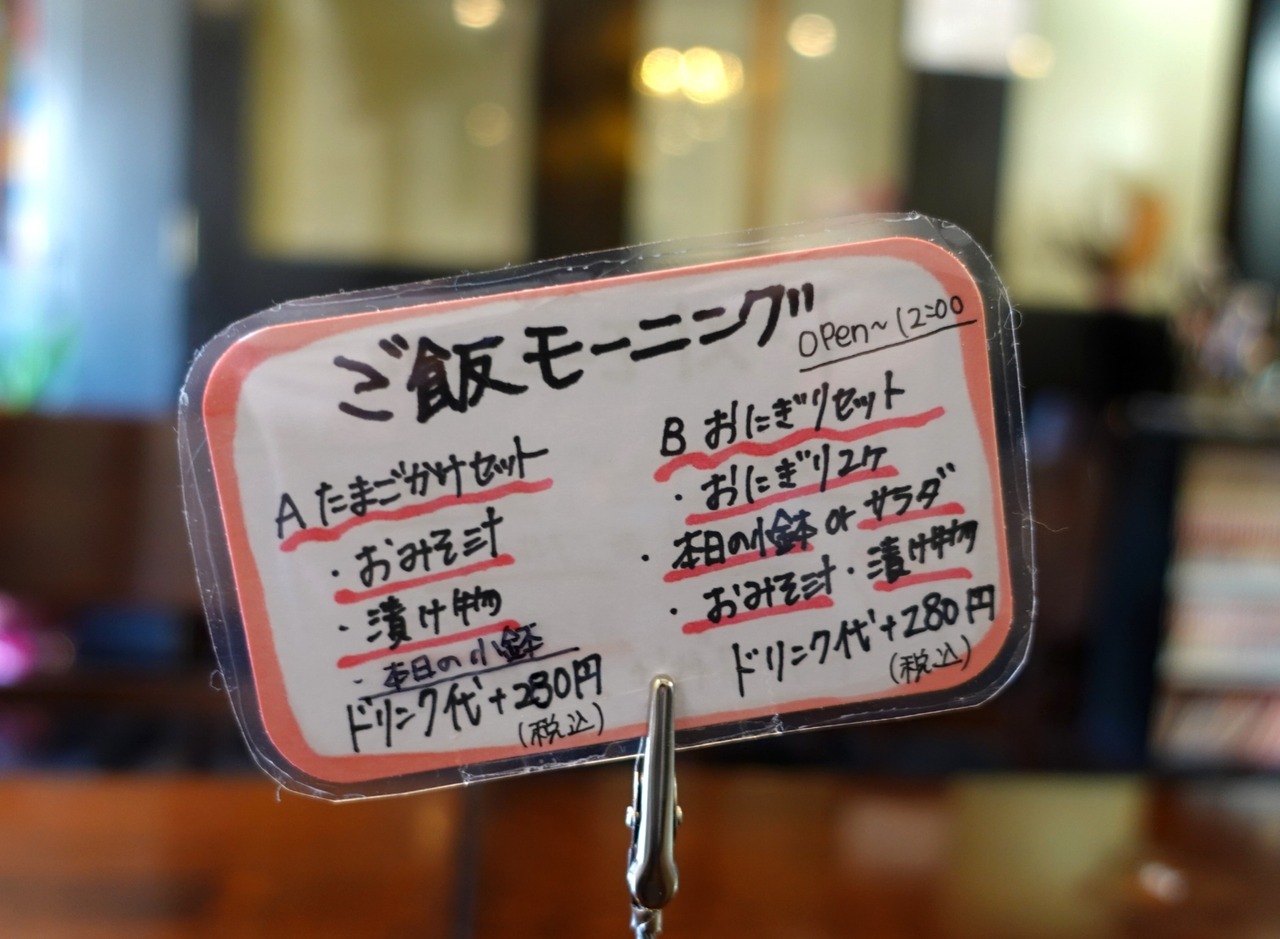 ご飯モーニング
OPen〜12:00
A たまごかけセット
・おみそ汁
・漬け物
・本日の小鉢
ドリンク代+280円
(税込)
B おにぎりセット
・おにぎり2ケ
・本日の小鉢 or サラダ
・おみそ汁・漬け物
ドリンク代+280円
(税込)